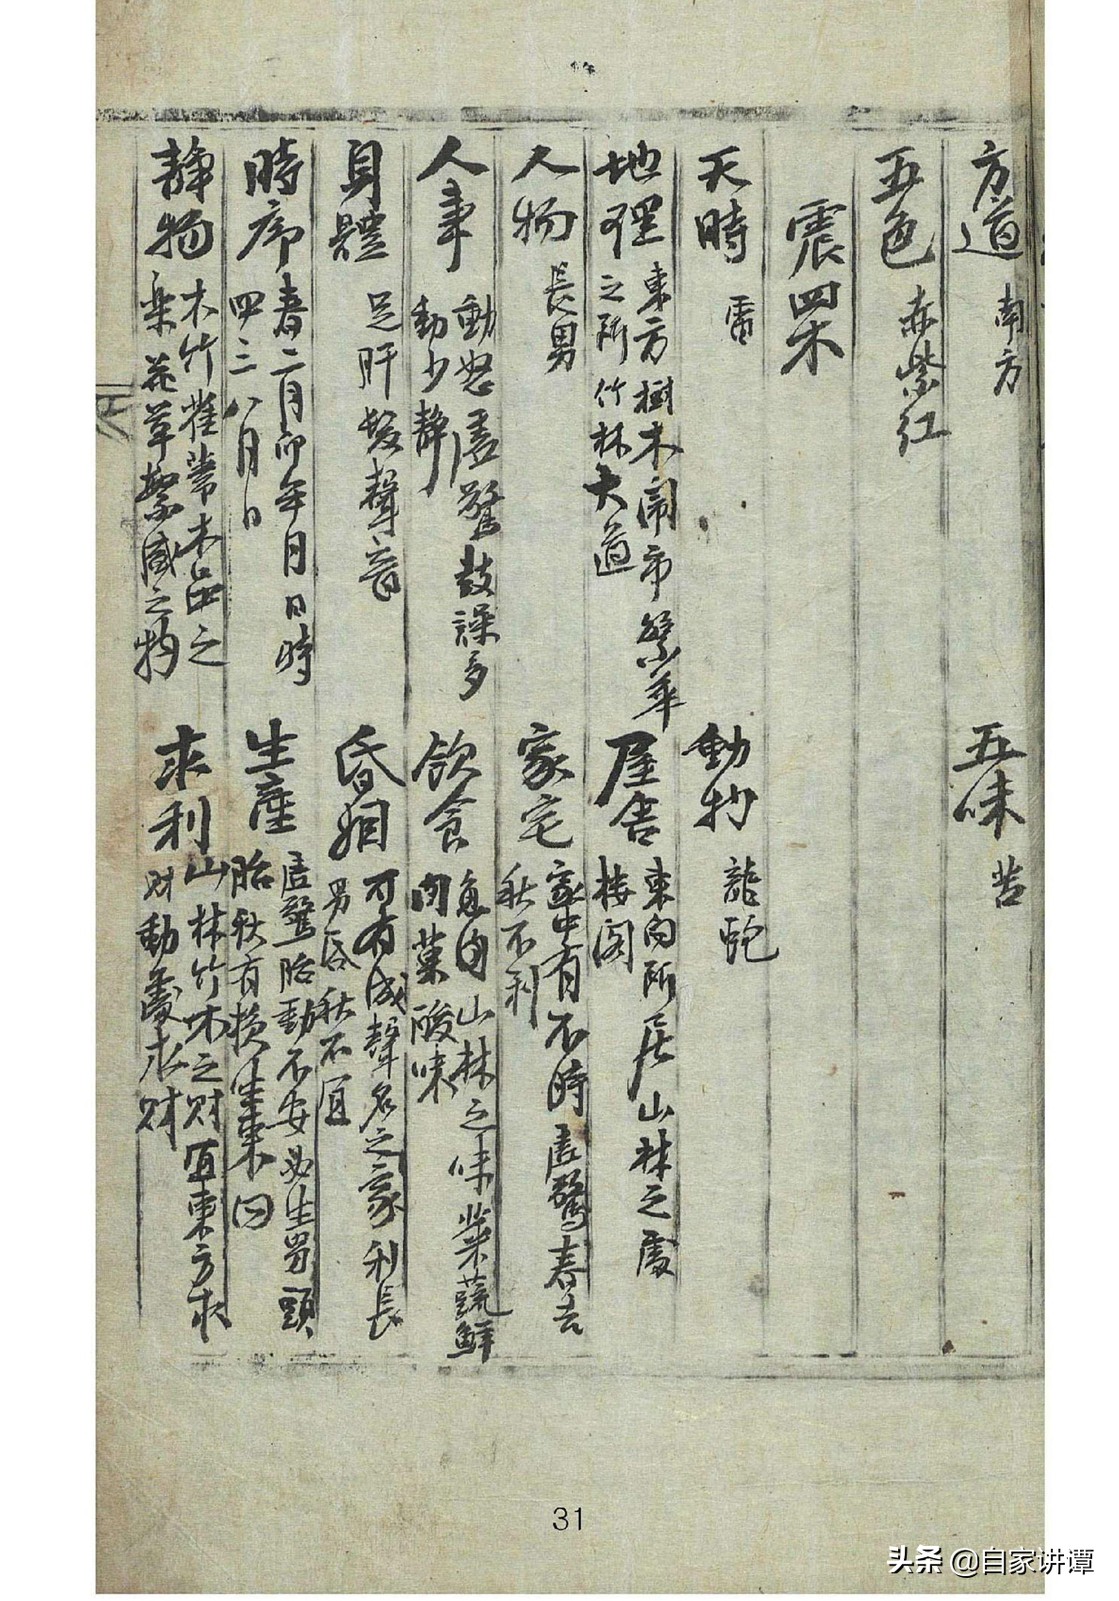 方道 南方 五味 苦
五色 赤紫紅
震四木
天時 雷 動物 龍蛇
地理 東方樹木鬧市繁華
之所竹林大道
屋舍 東向所居山林之處
楼阁
人物 長男
家宅 家中有不時虛驚春吉
秋不利
人事 動怒虛驚鼓譟多
動少靜
飲食 魚肉山林之味菜蔬鮮
肉菓酸味
身體 足肝髮聲音
昏姻 可有成聲名之家利長
男昏秋不宜
時序 春二月卯年月日時
四三八月日
生産 虛驚胎動不安必生男頭
胎秋有損坐東向
靜物 木竹雈葦木品之
楽花草繁盛之物
求利 山林竹木之财宜東方求
财動處求财
31
头条 @自家讲谭